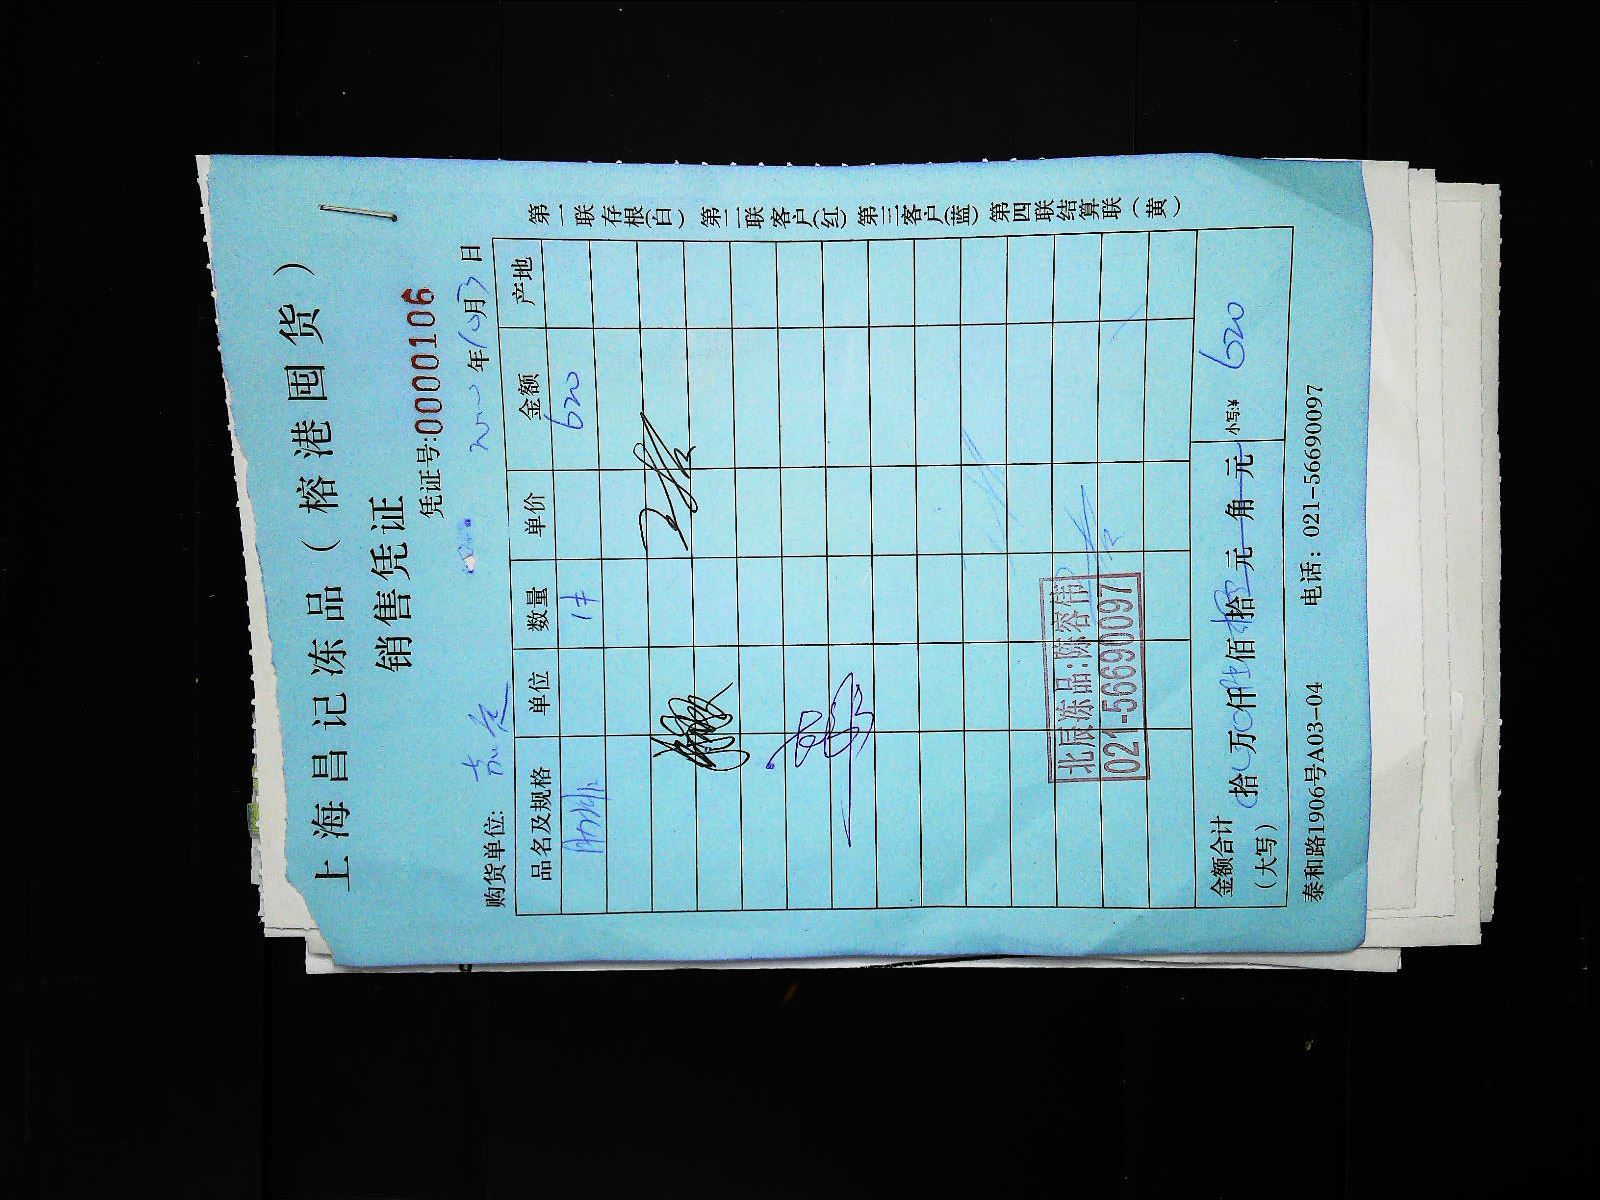 上海昌记冻品（榕港囤货）
销售凭证
凭证号:0000106
购货单位: 年10月3日
品名及规格 单位 数量 单价 金额 产地
1件 620
北辰冻品:陈容伟
021-56690097
金额合计（大写） 拾 万 仟 佰 拾 元 角 元 小写:¥ 620
泰和路1906号A03-04 电话：021-56690097
第一联存根(白) 第二联客户(红) 第三客户(蓝) 第四联结算联（黄）